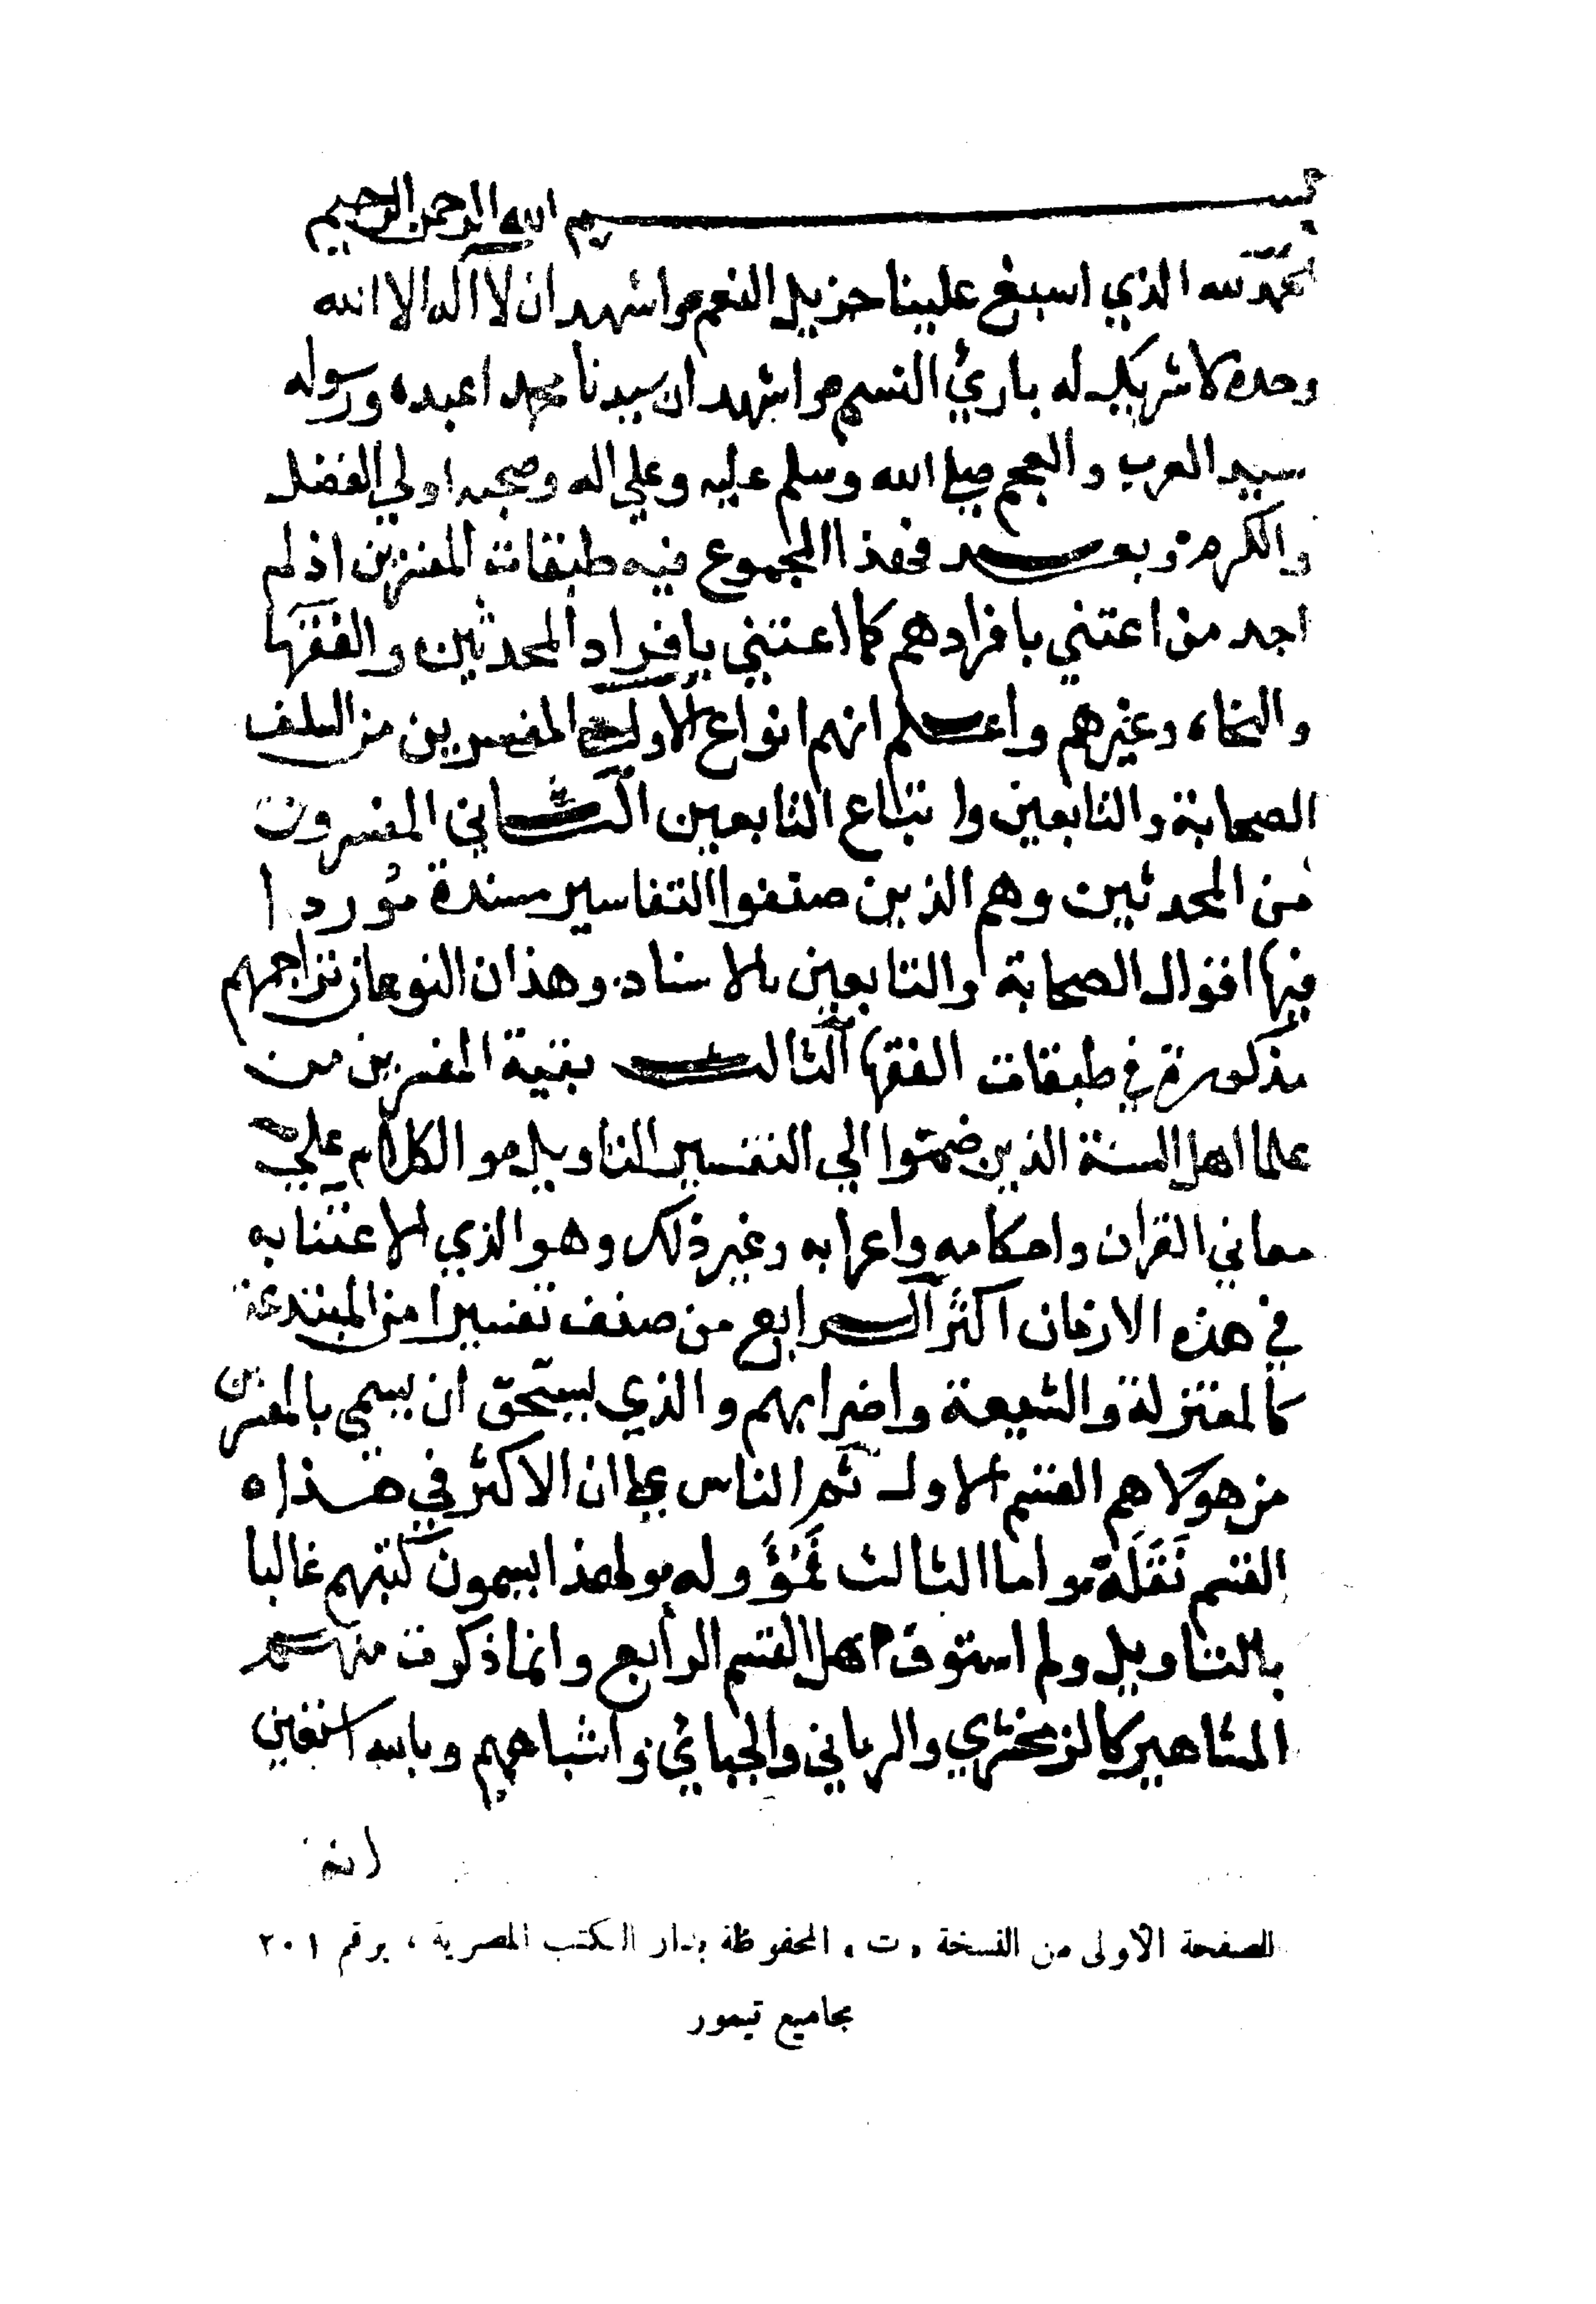 بسم الله الرحمن الرحيم
الحمد لله الذي اسبغ علينا جزيل النعم واشهد ان لا اله الا الله
وحده لا شريك له بارئ النسم واشهد ان سيدنا محمدا عبده ورسوله
سيد العرب والعجم صلى الله وسلم عليه وعلي اله وصحبه اولي الفضل
والكرم وبعد فهذا المجموع فيه طبقات المفسرين اذ لم
اجد من اعتني بافرادهم كما اعتني بافراد المحدثين والفقها
والنحاه وغيرهم واعلم انهم انواع الاول المفسرين من السلف
الصحابة والتابعين واتباع التابعين الثاني المفسرون
من المحدثين وهم الذين صنفوا التفاسير مسندة موردا
فيها اقوال الصحابة والتابعين بالاسناد وهذان النوعان تراجمهم
مذكورة في طبقات الفقها الثالث بقية المفسرين من
علما اهل السنة الذين ضموا الي التفسير التاويل والكلام علي
معاني القران واحكامه واعرابه وغير ذلك وهو الذي الاعتنا به
في هذه الازمان اكثر الرابع من صنف تفسيرا من المبتدعة
كالمعتزلة والشيعة واضرابهم والذي يستحق ان يسمي بالمفسرين
من هولا هم القسم الاول ثم الناس علي ان الاكثر في هذا ه
القسم نَقَلَة واما الثالث فمؤوله ولهذا يسمون كتبهم غالبا
بالتاويل ولم استوف اهل القسم الرابع وانما ذكرت منهم
المشاهير كالزمخشري والرماني والجبائي واشباههم وبالله استعين
انه
الصفحة الأولى من النسخة «ت» المحفوظة بدار الكتب المصرية ، برقم ٢٠١
مجاميع تيمور